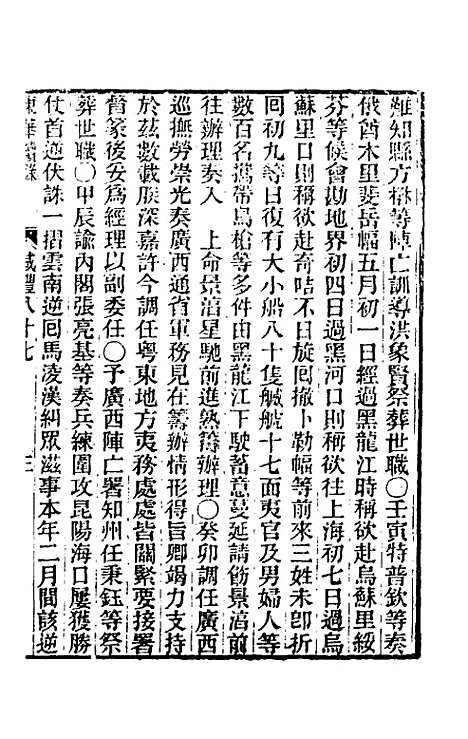 難知縣方楙等陣亡訓導洪象賢祭葬世職〇壬寅特普欽等奏
俄酋木里斐岳幅五月初一日經過黑龍江時稱欲赴烏蘇里綏
芬等候會勘地界初四日過黑河口則稱欲往上海初七日過烏
蘇里口則稱欲赴奇咭不日旋囘撤卜勒幅等前來三姓未卽折
囘初九等日復有大小船八十隻艈艈十七面夷官及男婦人等
數百名攜帶鳥槍等多件由黑龍江下駛蓄意蔓延請飭景淳前
往辦理奏入　上命景淳星馳前進熟籌辦理〇癸卯調任廣西
巡撫勞崇光奏廣西通省軍務見在籌辦情形得旨卿竭力支持
於茲數載朕深嘉許今調任粵東地方夷務處處皆關緊要接署
督篆後妥爲經理以副委任〇予廣西陣亡署知州任秉鈺等祭
葬世職〇甲辰諭內閣張亮基等奏兵練圍攻昆陽海口屢獲勝
仗首逆伏誅一摺雲南逆囘馬淩漢糾眾滋事本年二月間該逆
東華續錄　咸豐八十七　三